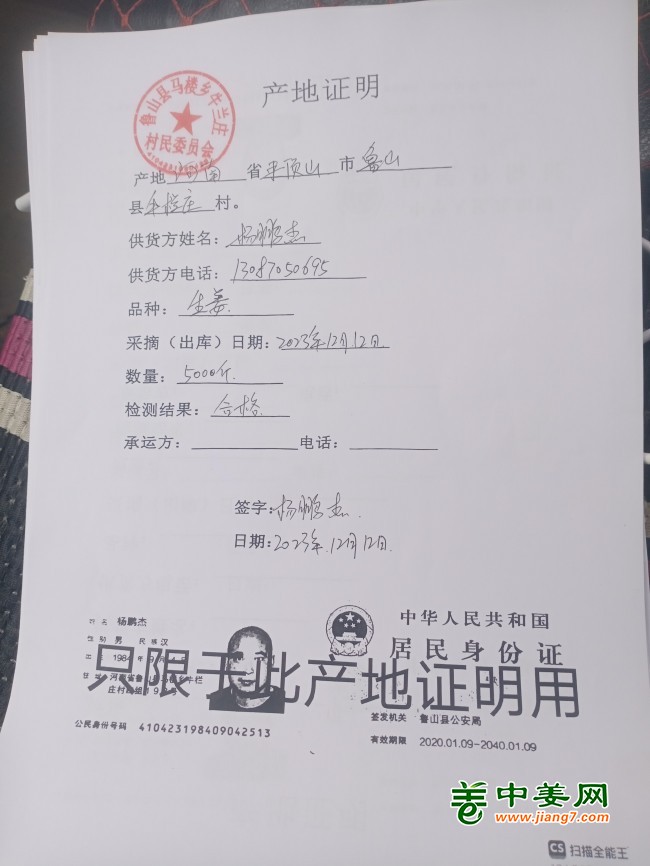 鲁山县马楼乡牛兰庄
村民委员会
产地证明
产地 河南 省 平顶山 市 鲁山
县 牛栏庄 村。
供货方姓名： 杨鹏杰
供货方电话： 13087050695
品种： 生姜
采摘（出库）日期： 2023年12月12日
数量： 5000斤.
检测结果： 合格
承运方： 电话：
签字： 杨鹏杰.
日期： 2023年.12月12日.
姓名 杨鹏杰
性别 男 民族 汉
中华人民共和国
居民身份证
只限于此产地证明用
签发机关 鲁山县公安局
公民身份号码 410423198409042513
有效期限 2020.01.09-2040.01.09
中姜网
www.jiang7.com
CS 扫描全能王